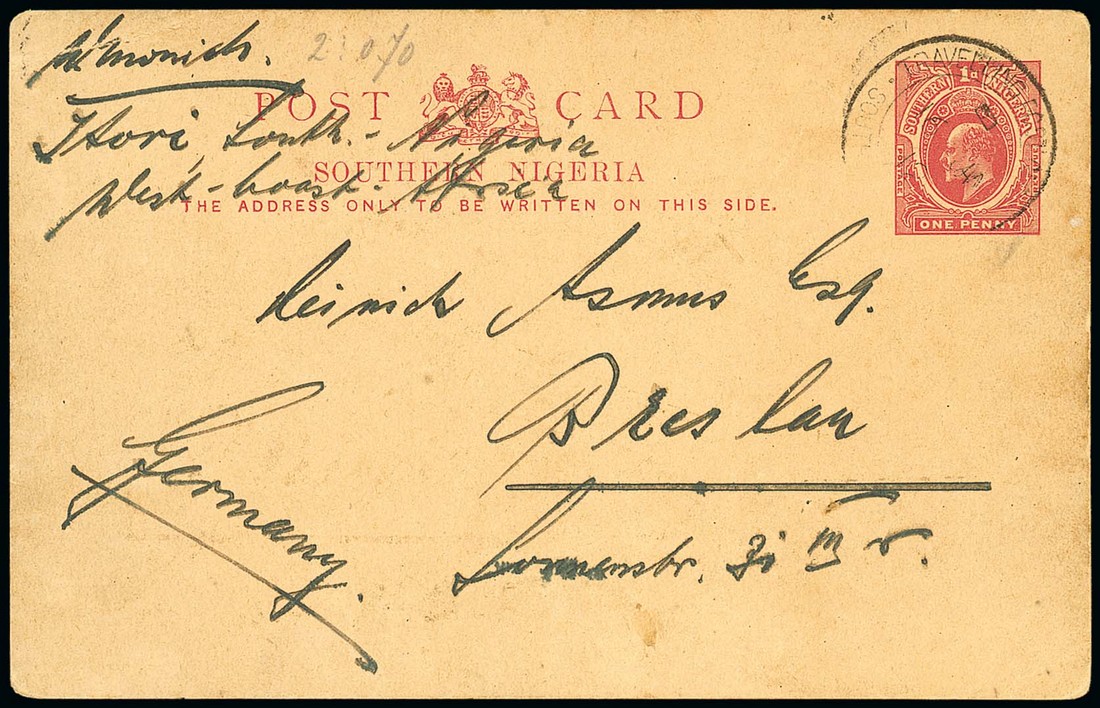 2.070
POST CARD
Itori, South-Nigeria
SOUTHERN NIGERIA
West-Coast-Africa
THE ADDRESS ONLY TO BE WRITTEN ON THIS SIDE.
1d
SOUTHERN NIGERIA
POSTAGE
ONE PENNY
TRAVELLING
Heinrich Asmus Esq.
Breslau
Germany.
III r.